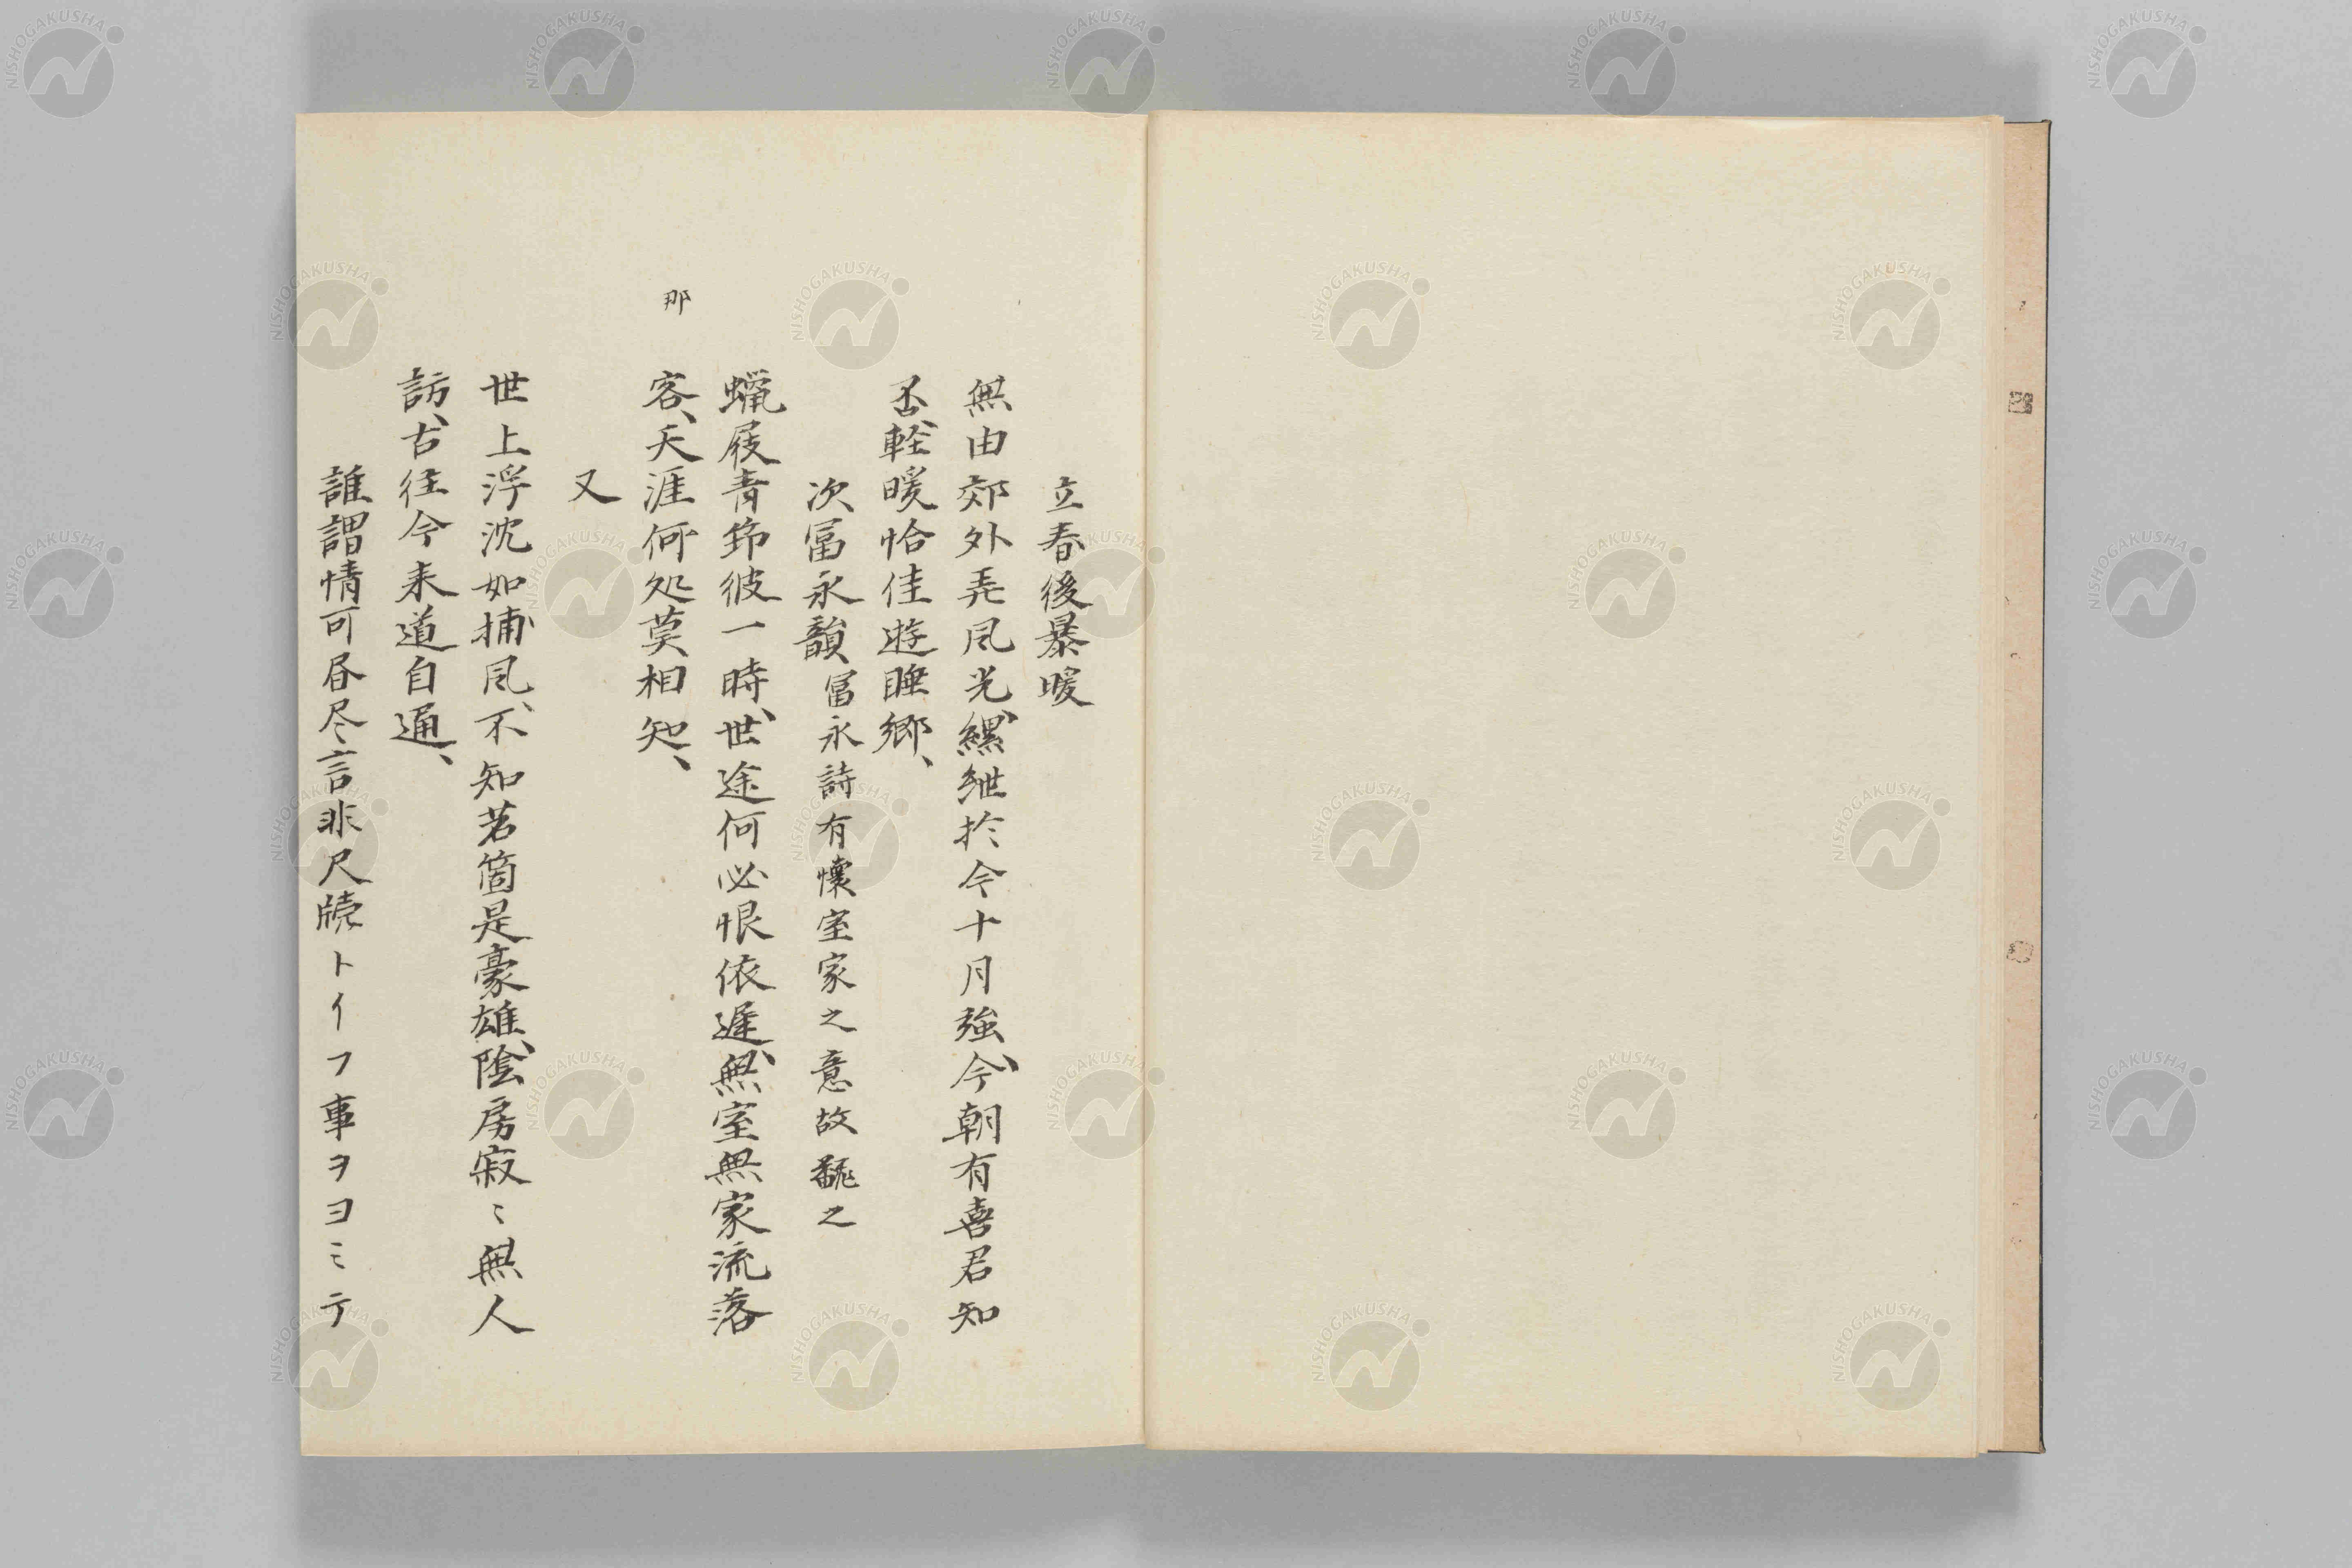 立春後暴暖
無由郊外弄風光、縲紲於今十月強、今朝有喜君知
否、軽暖恰佳遊睡郷、
次冨永韻冨永詩有懐室家之意故飜之
蝋屐青鞋彼一時、世途何必恨依遅、無室無家流落
客、天涯何処莫相知、
那
又
世上浮沈如捕風、不知若箇是豪雄、陰房寂〻無人
訪、古往今来道自通、
誰謂情可昼尽言非尺牘トイフ事ヲヨミテ
NISHOGAKUSHA